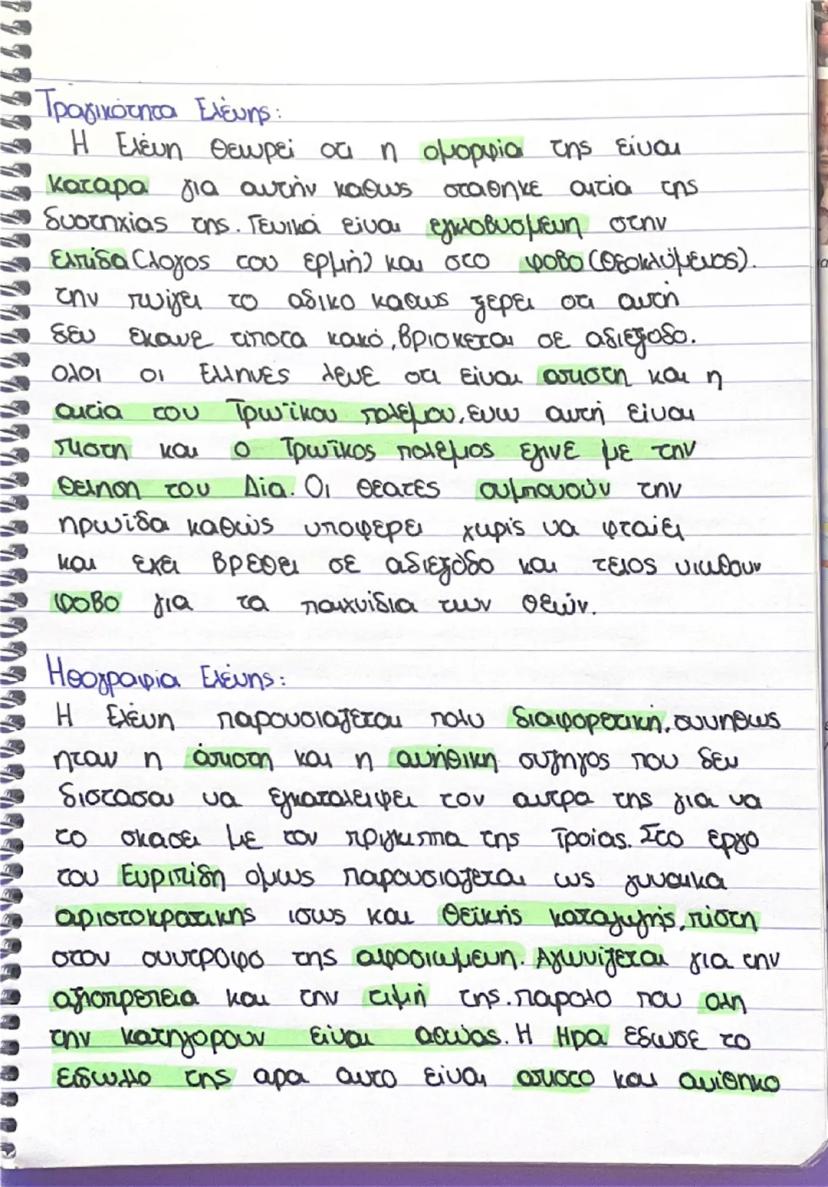 Τραγικότητα Ελένης:
Η Ελένη θεωρεί οτι η ομορφια της είναι
καταρα για αυτήν καθως σταθηκε αιτία της
δυστηχίας της. Γενικά είναι εγκλοβυσμενη στην
ελπίδα (λογος του ερμή) και στο φοβο (Θεοκλύμενος).
την πνίγει το αδικο καθως ξερει οτι αυτή
δεν εκανε τίποτα κακό, βρισκεται σε αδιεξοδο.
ολοι οι Ελληνες λενε οτι είναι απιστη και η
αιτία του Τρωϊκου πολεμου, ενω αυτή είναι
πιστη και ο Τρωϊκος πολεμος εγινε με την
θεληση του Δία. Οι θεατες συμπονούν την
ηρωίδα καθώς υποφερει χωρίς να φταίει
και εχει βρεθει σε αδιεξοδο και τελος νιωθουν
φοβο για τα παιχνίδια των θεών.
Ηθογραφια Ελένης:
Η Ελένη παρουσιαζεται πολυ διαφορετική, συνηθως
ηταν η άπιστη και η ανήθικη συζηγος που δεν
διστασαι να εγκαταλειψει τον αντρα της για να
το σκασει με τον πριγκιπα της Τροίας. Στο εργο
του Ευριπίδη ομως παρουσιαζεται ως γυναικα
αριστοκρατικης ισως και θεϊκής καταγωγής, πίστη
στον συντροφο της αφοσιωμενη. Αγωνίζεται για την
αξιοπρεπεια και την τιμή της. παρολο που ολη
την κατηγορουν είναι αθωας. Η Ηρα εδωσε το
ειδωλλο της αρα αυτο είναι απιστο και ανίθηκο